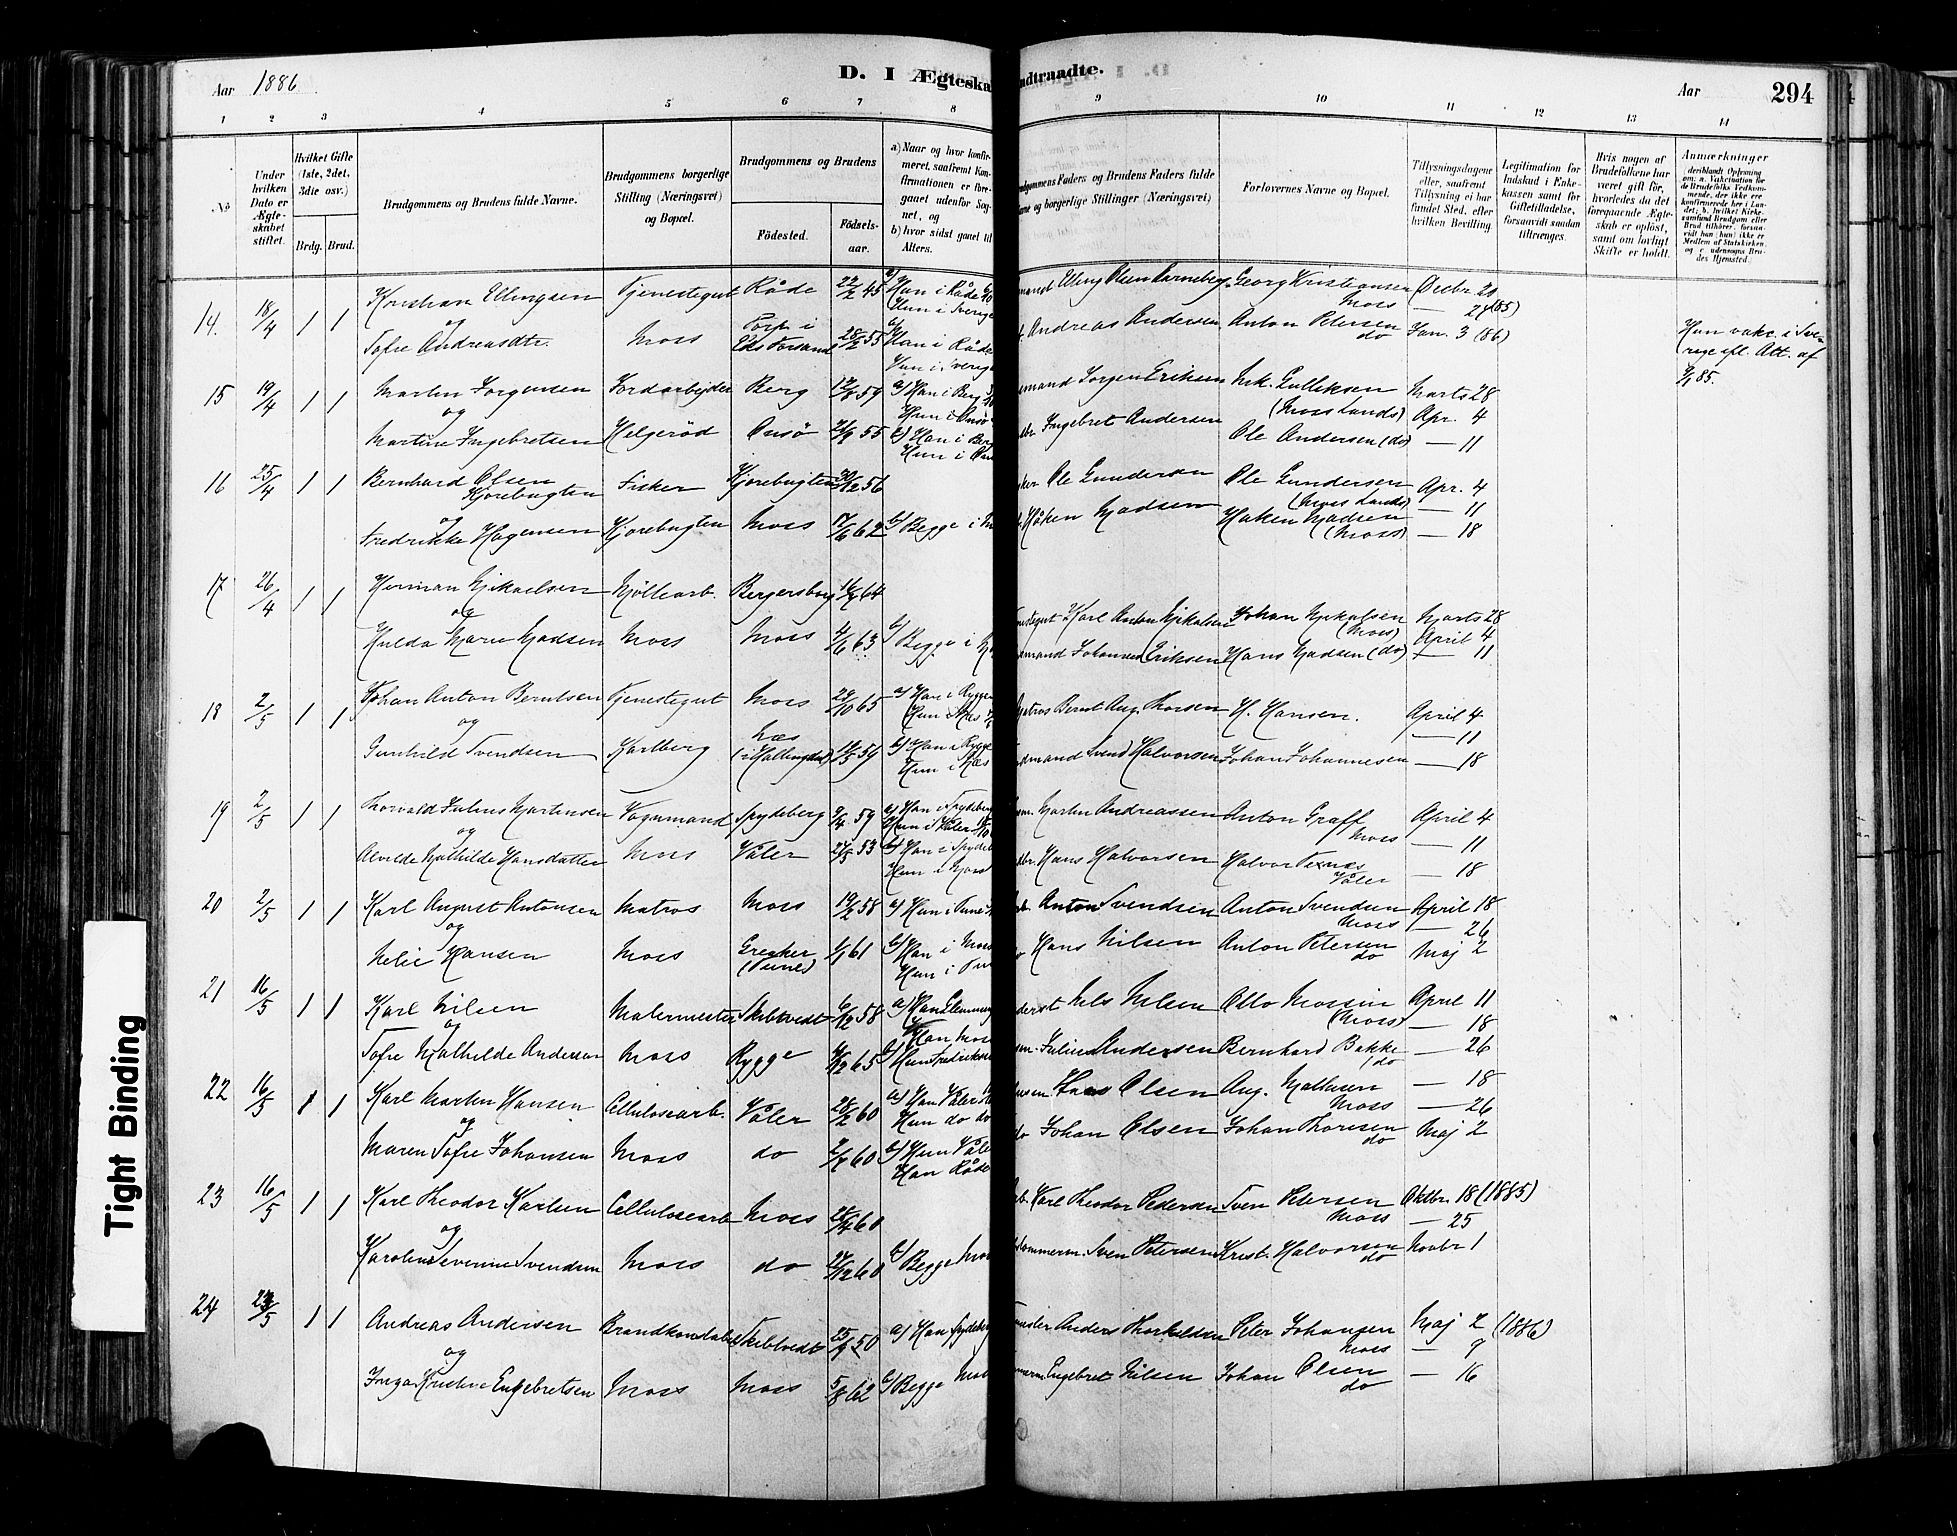 Aar 1886
D. I Ægteska
ndtraadte.
Aar
294
1 2 3 4 5 6 7 8 9 10 11 12 13 14
No
Under hvilken Dato er Ægteskabet stiftet.
Hvilket Gifte (1ste, 2det, 3die osv.)
Brdg. Brud.
Brudgommens og Brudens fulde Navne.
Brudgommens borgerlige Stilling (Næringsvei) og Bopæl.
Brudgommens og Brudens
Fødested.
Fødselsaar.
a) Naar og hvor konfirmeret, saafremt Konfirmationen er foregaaet udenfor Sognet, og
b) hvor sidst gaaet til Alters.
udgommens Faders og Brudens Faders fulde
avne og borgerlige Stillinger (Næringsvei)
Forlovernes Navne og Bopæl.
Tillysningsdagene eller, saafremt Tillysning ei har fundet Sted, efter hvilken Bevilling.
Legitimation for Indskud i Enkekassen samt for Giftetilladelse, forsaavidt saadan tiltrænges.
Hvis nogen af Brudefolkene har været gift før, hvorledes da det foregaaende Ægteskab er opløst, samt om lovligt Skifte er holdt.
Anmærkninger
14. 18/4 1 1 Kristian Ellingsen Tjenestegut Råde 22/2 45 a) Han i Råde
Hun i Sverige
og
Sofie Andreasdtr. Moss Torp i Eds Forsaml 28/2 55 b) Han i Råde
Hun i Sverige
Georg Kristiansen Moss Decbr. 20
— 27 (85)
Andreas Andersen Anton Petersen do Jan. 3 (86)
Hun vakc. i Sverige efl. Att. af
15 19/4 1 1 Martin Jørgensen Jordarbejder Berg 59 a) Han i Berg
Hun i Onsø
og
Martine Ingebretsen Helgerød Onsø 55 b) Han i Berg
mand Jørgen Eriksen Mk. Gulliksen (Moss Lands) Marts 28
Ingebret Andersen Ole Andersen (do) Apr. 4
— 11
16 25/4 1 1 Bernhard Olsen Kjørebugten Fisker Kjørebugten 30/12 56
og
Fredrikke Hagensen Kjørebugten Moss 17/6 62 b) Begge i
Ole Gundersen Ole Gundersen (Moss Lands) Apr. 4
Håken Madsen Haken Madsen (Moss) — 11
— 18
17 26/4 1 1 Herman Mikaelsen Møllearb. Bergersborg 64
og
Hulda Marie Madsen Moss Moss 4/6 63 b) Begge i
Karl Anton Mikalsen Johan Mikalsen (Moss) Marts 28
April 4
mand Johannes Eriksen Hans Madsen (do) — 11
18 2/5 1 1 Johan Anton Berntsen Tjenestegut Moss 24/10 65 a) Han i Rygge
Hun i Næs
og
Gunhild Svendsen Karlberg Næs (i Hallingdal) 59 b) Han i Rygge
Hun i Næs
Matros Bernt Aug. Thorsen H. Hansen. April 4
— 11
Svend Halvorsen Johan Johannesen — 18
19 2/5 1 1 Thorvald Julius Martensen Vognmand Spydeberg 9/4 59 a) Han i Spydeberg
Hun i Våler
og
Alvilde Mathilde Hansdatter Moss Våler 27/5 53 b) Han i Spydeb
Hun i Moss
Marten Andreassen Anton Graff Moss April 4
— 11
Hans Halvorsen Halvor Texnæs Våler — 18
20 2/5 1 1 Karl August Antonsen Matros Moss 19/2 58 a) Hun i Tune
og
Nelie Hansen Moss Greaker (Tune) 1/1 61 b) Han i Moss
Hun i Tun
Anton Svendsen Anton Svendsen Moss April 18
— 26
Hans Nilsen Anton Petersen do Maj 2
21 16/5 1 1 Karl Nilsen Malermester Skibtvedt 6/12 58 a) Han Glemming
og
Sofie Mathilde Andersen Moss Rygge 65 b) Han Moss
Hun Fredrikst
Nils Nilsen Otto Mossin (Moss) April 11
— 18
Julius Andersen Bernhard Bakke do — 26
22 16/5 1 1 Karl Marten Hansen Cellulosearb. Våler 28/2 60 a) Han Våler
Hun do do
og
Maren Sofie Johansen Moss do 60 b) Hun Våler
Han Råde
Hans Olsen Aug. Mathisen Moss — 18
— 26
do Johan Olsen Johan Thoresen do Maj 2
23 16/5 1 1 Karl Theodor Karlsen Cellulosearb Moss 28/4 60
og
Karoline Severine Svendsen Moss do 27/12 60 b) Begge Moss
Karl Theodor Pedersen Sven Petersen Moss Oktbr. 18 (1885)
— 25
Tømmerm. Sven Petersen Krist. Halvorsen do Novbr 1
24 23/5 1 1 Andreas Andersen Brandkonstabel Skibtvedt 25/9 50 a) Han Spydeberg
og
Inga Kristine Engebretsen Moss Moss 5/8 62 b) Begge Moss
Anders Thorkildsen Peter Johansen Moss Maj 2 (1886)
— 9
Engebret Nilsen Johan Olsen do — 16
Tight Binding